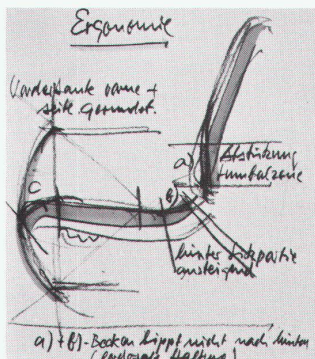 Ergonomie
Vorderkante vorne +
seite gerundet.
a)
Abstützung
Lumbalzone
b)
C
hinter Sitzpartie
ansteigend
a) + b) - Becken kippt nicht nach hinten
(lordosale Haltung)